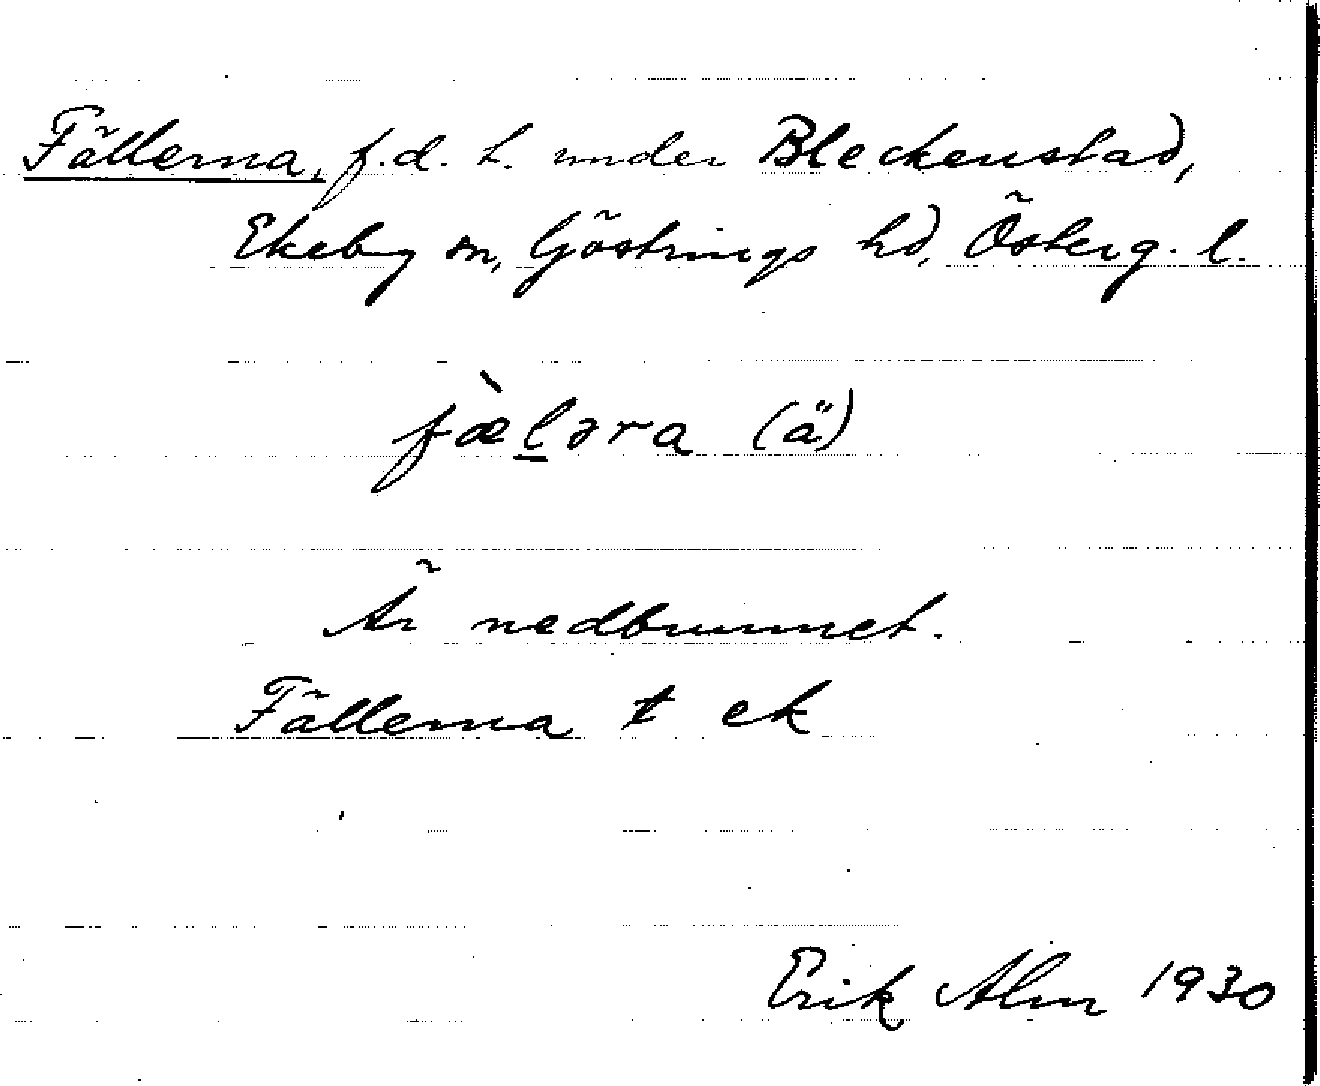 Fällerna, f.d. t. under Bleckenstad,
Ekeby sn, Göstrings hd, Österg. l.
fæ̀l̠əra (ä)
Är nedbrunnet.
Fällerna t ek
Erik Alm 1930